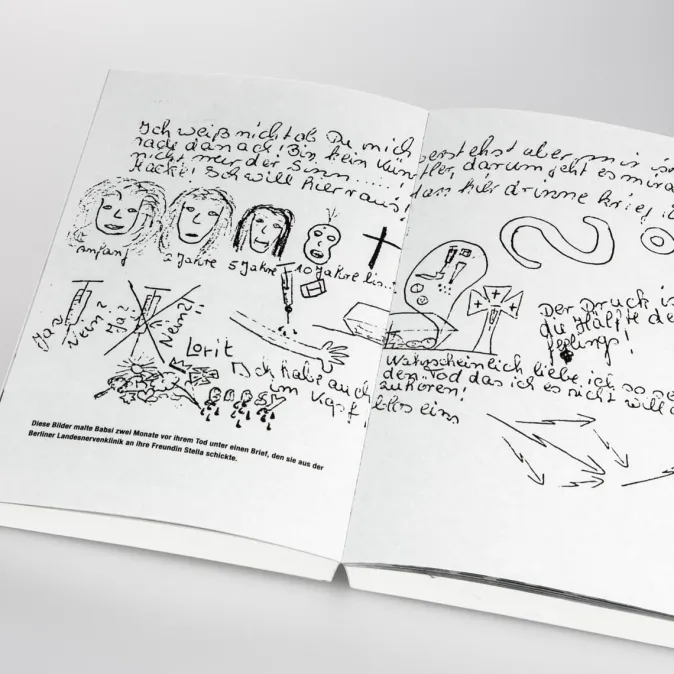 Ich weiß nicht ob Du mich verstehst aber mir is
rade danach! Bin kein Künstler, darum geht es mir
nicht nur der Sinn.....! dan hier drinne krieg i
Macke! Ich will hier raus!
Anfang 2 Jahre 5 Jahre 10 Jahre bin...
Ja? Nein? Ja? Nein!
Lorit
Ich habe auch
im Kopf
blos eins
Der Druck is
die Hälfte de
feelings!
Wahrscheinlich liebe ich so se
den Tod das ich es nicht will
zuhören!
Diese Bilder malte Babsi zwei Monate vor ihrem Tod unter einen Brief, den sie aus der
Berliner Landesnervenklinik an ihre Freundin Stella schickte.